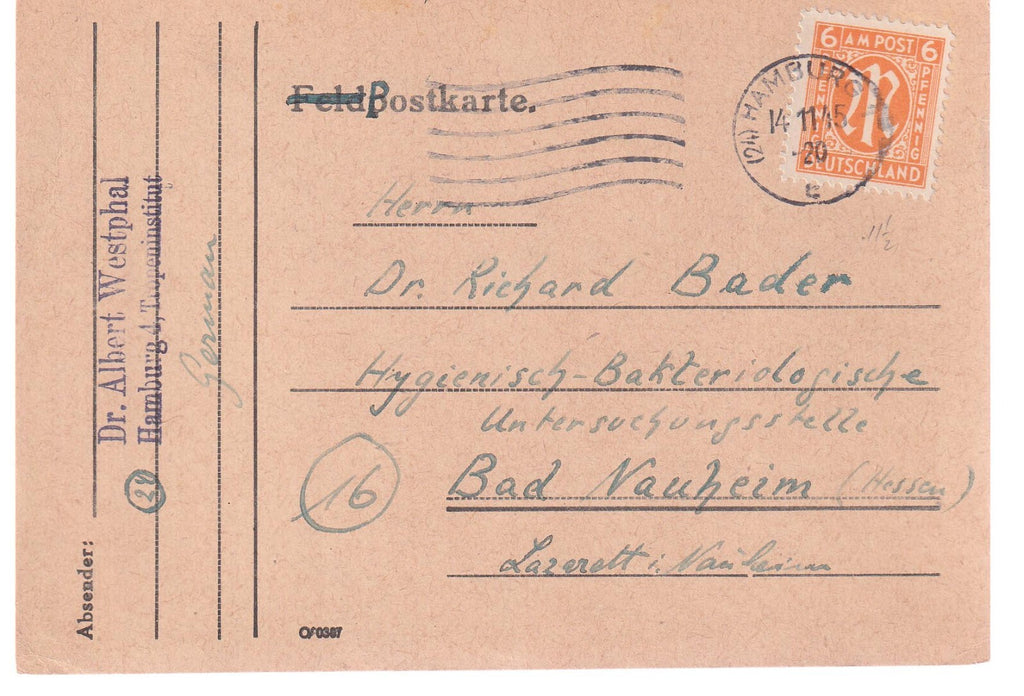 6 AM POST 6
PFENNIG
PFENNIG
DEUTSCHLAND
(24) HAMBURG
14.11.45
-20
c
FeldPostkarte.
11½
Herrn
Dr. Richard Bader
Hygienisch-Bakteriologische
Untersuchungsstelle
16
Bad Nauheim (Hessen)
Lazarett i. Nauheim
Absender:
Dr. Albert Westphal
Hamburg 4, Tropeninstitut
24
Germany
O/0387